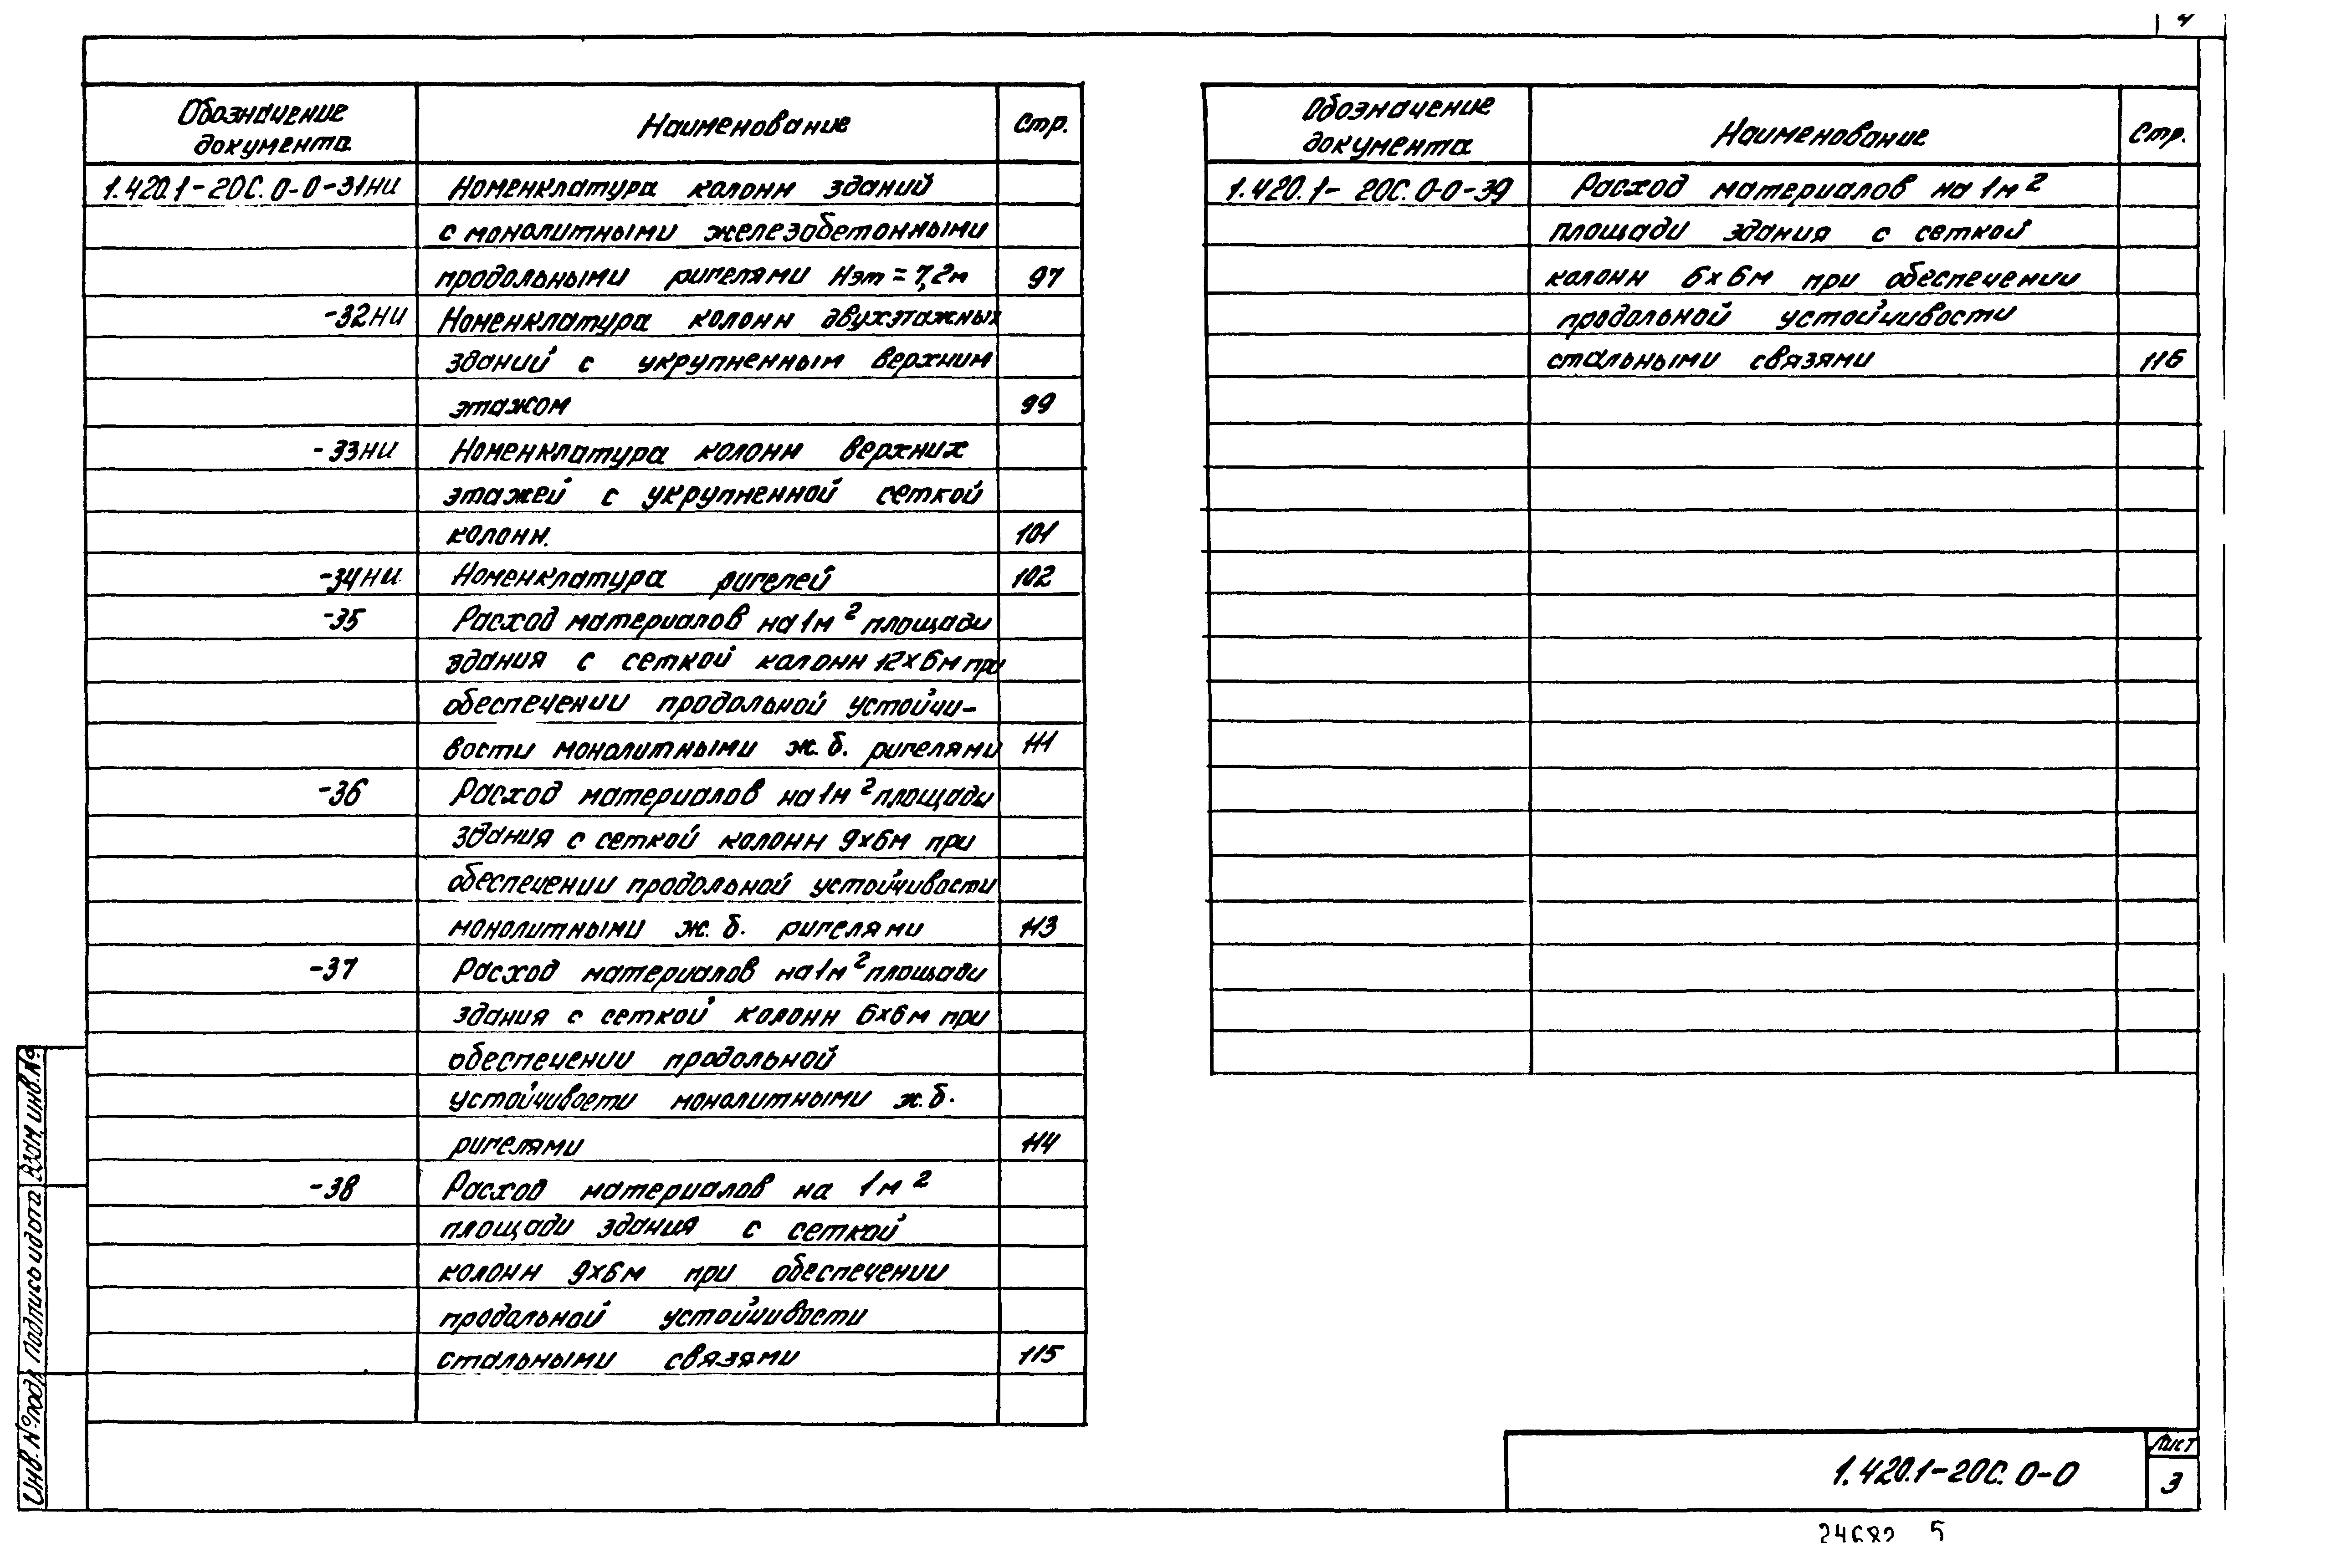 4
Обозначение документа Наименование Стр.
1.420.1-20С.0-0-31НИ Номенклатура колонн зданий
с монолитными железобетонными
продольными ригелями Нэт = 7,2м 97
-32НИ Номенклатура колонн двухэтажных
зданий с укрупненным верхним
этажом 99
-33НИ Номенклатура колонн верхних
этажей с укрупненной сеткой
колонн. 101
-34НИ Номенклатура ригелей 102
-35 Расход материалов на 1м² площади
здания с сеткой колонн 12х6м при
обеспечении продольной устойчи-
вости монолитными ж.б. ригелями 111
-36 Расход материалов на 1м² площади
здания с сеткой колонн 9х6м при
обеспечении продольной устойчивости
монолитными ж.б. ригелями 113
-37 Расход материалов на 1м² площади
здания с сеткой колонн 6х6м при
обеспечении продольной
устойчивости монолитными ж.б.
ригелями 114
-38 Расход материалов на 1м²
площади здания с сеткой
колонн 9х6м при обеспечении
продольной устойчивости
стальными связями 115
Обозначение документа Наименование Стр.
1.420.1-20С.0-0-39 Расход материалов на 1м²
площади здания с сеткой
колонн 6х6м при обеспечении
продольной устойчивости
стальными связями 116
Инв. № подл. Подпись и дата Взам. инв. №
1.420.1-20С.0-0
Лист
3
24682 5